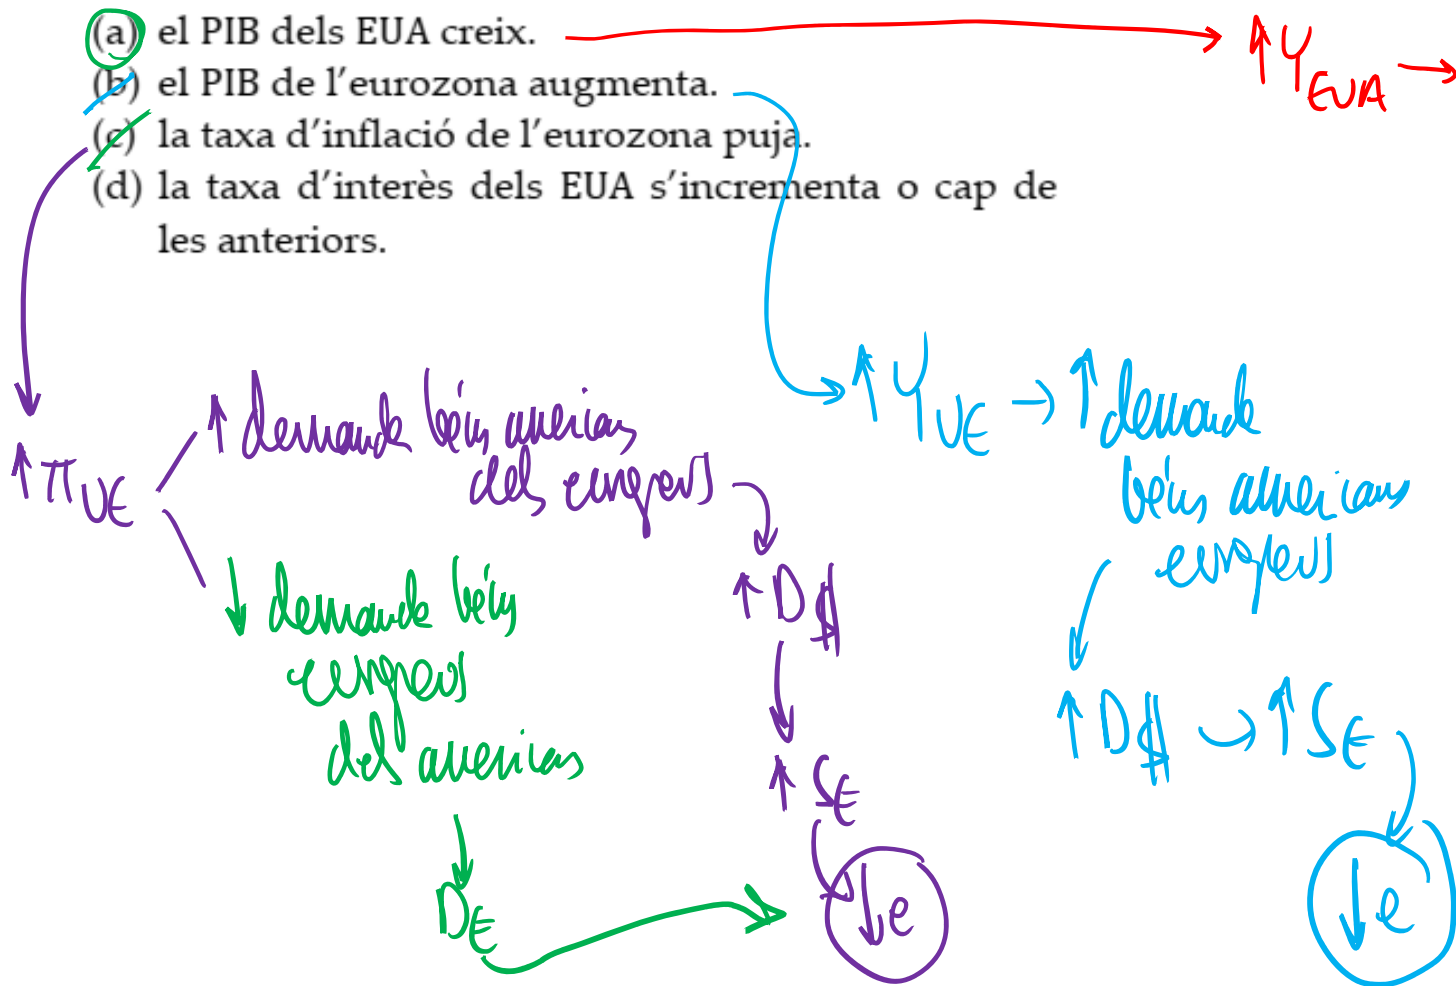 (a) el PIB dels EUA creix.
↑Y EUA →
(b) el PIB de l'eurozona augmenta.
(c) la taxa d'inflació de l'eurozona puja.
(d) la taxa d'interès dels EUA s'incrementa o cap de
les anteriors.
↑π UE
↑ demanda béns americans
dels europeus
↑ D$
↑ S€
↓e
↓ demanda béns
europeus
dels americans
D€
↑Y UE → ↑ demanda
béns americans
europeus
↑ D$ → ↑ S€
↓e